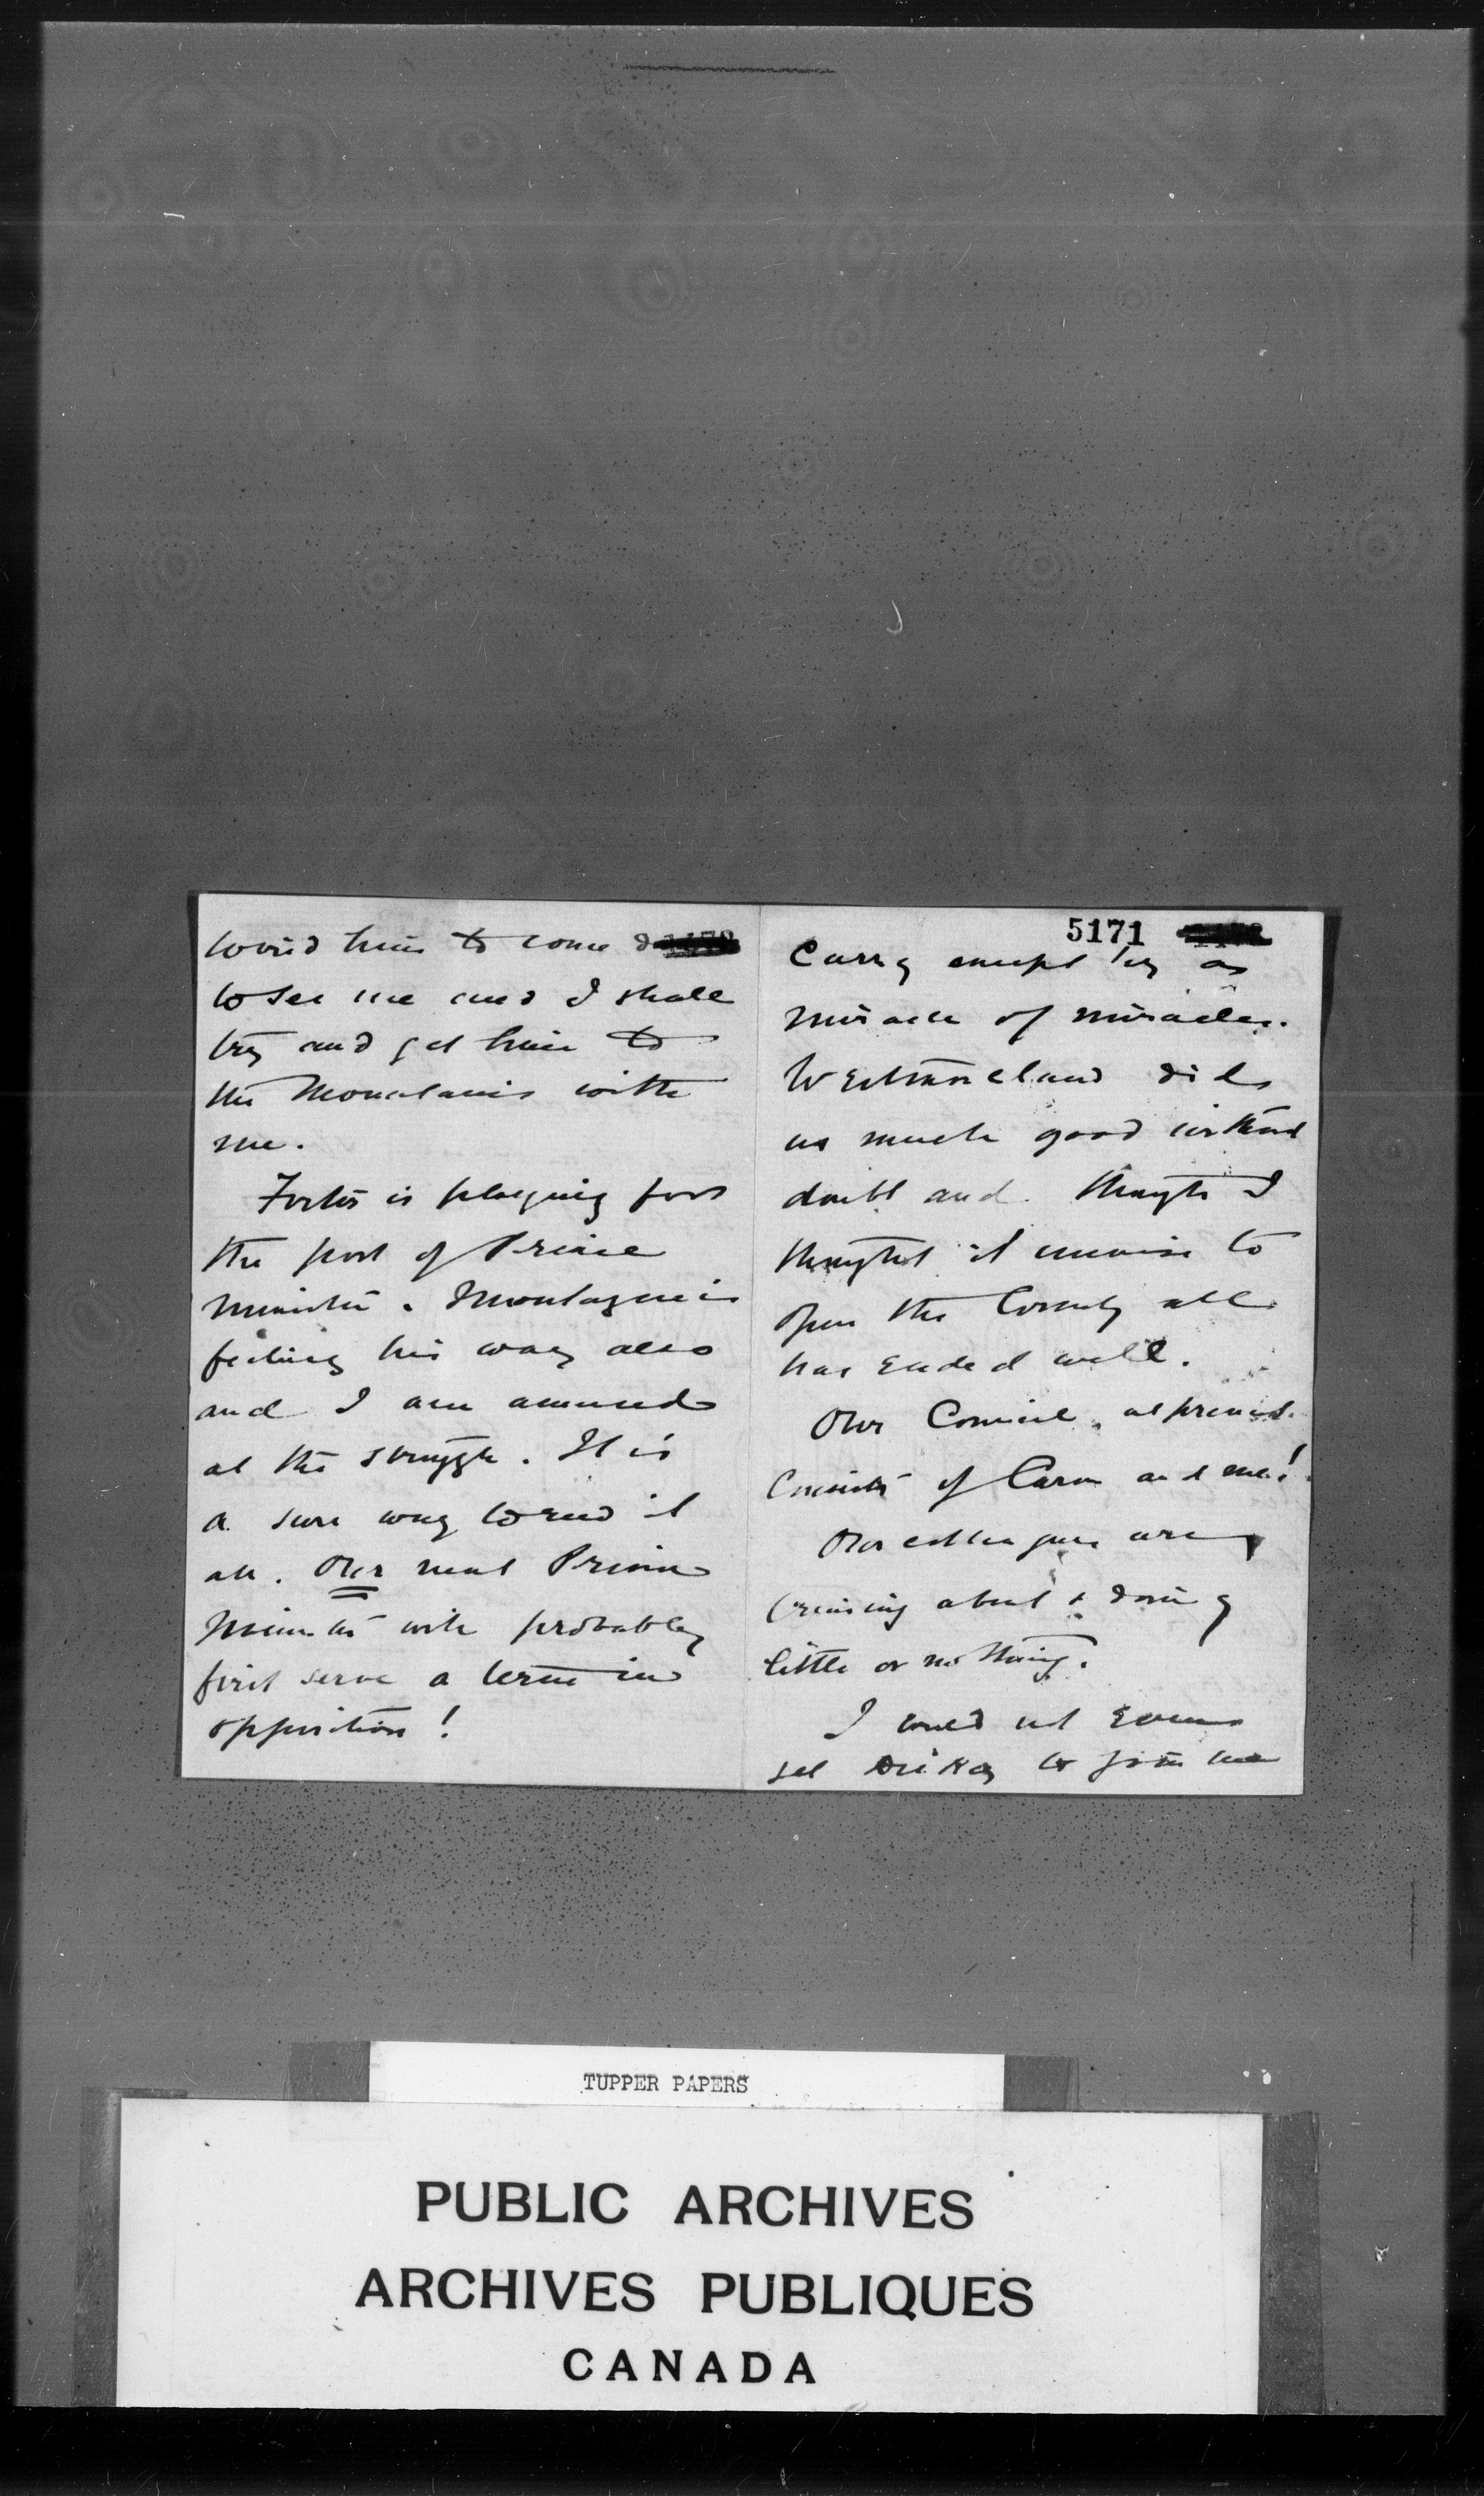 wired him to come &
to see me and I shall
try and get him to
the Mountains with
me.
Foster is playing for
the post of Prime
Minister. Montague is
feeling his way also
and I am amused
at the struggle. It is
a sure way to end it
all. Our next Prime
Minister will probably
first serve a term in
opposition!
5171
Carry except by a
miracle of miracles.
Westmoreland did
us much good without
doubt and though I
thought it unwise to
open the County all
has ended well.
Our Council at present
consists of Caron and me!
Our colleagues are
cruising about & doing
little or nothing.
I could not even
get Dickey to join me
TUPPER PAPERS
PUBLIC ARCHIVES
ARCHIVES PUBLIQUES
CANADA